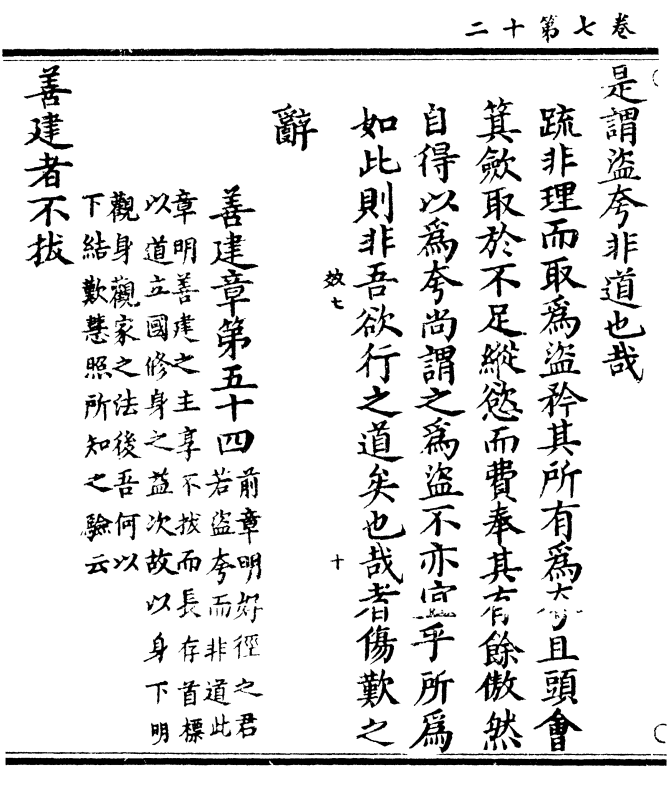 卷七第十二
是謂盜夸非道也哉
疏非理而取爲盜矜其所有爲夸且頭會
箕歛取於不足縱慾而費奉其有餘傲然
自得以爲夸尚謂之爲盜不亦宜乎所爲
如此則非吾欲行之道矣也哉者傷歎之
辭
效七 十
善建章第五十四
前章明好徑之君
若盜夸而非道此
章明善建之主享不拔而長存首標
以道立國修身之益次故以身下明
觀身觀家之法後吾何以
下結歎慧照所知之驗云
善建者不拔